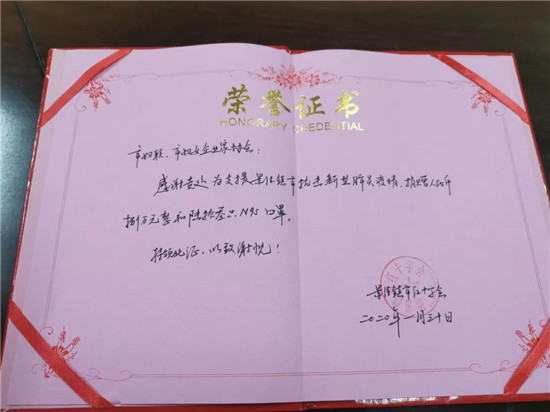 荣誉证书
HONORARY CREDENTIAL
市妇联、市妇女企业家协会：
感谢贵处为支援景德镇市抗击新型肺炎疫情，捐赠人民币
捌万元整和陆拾叁只N95口罩。
特颁此证，以致谢忱！
景德镇市红十字会
二〇二〇年一月三十日